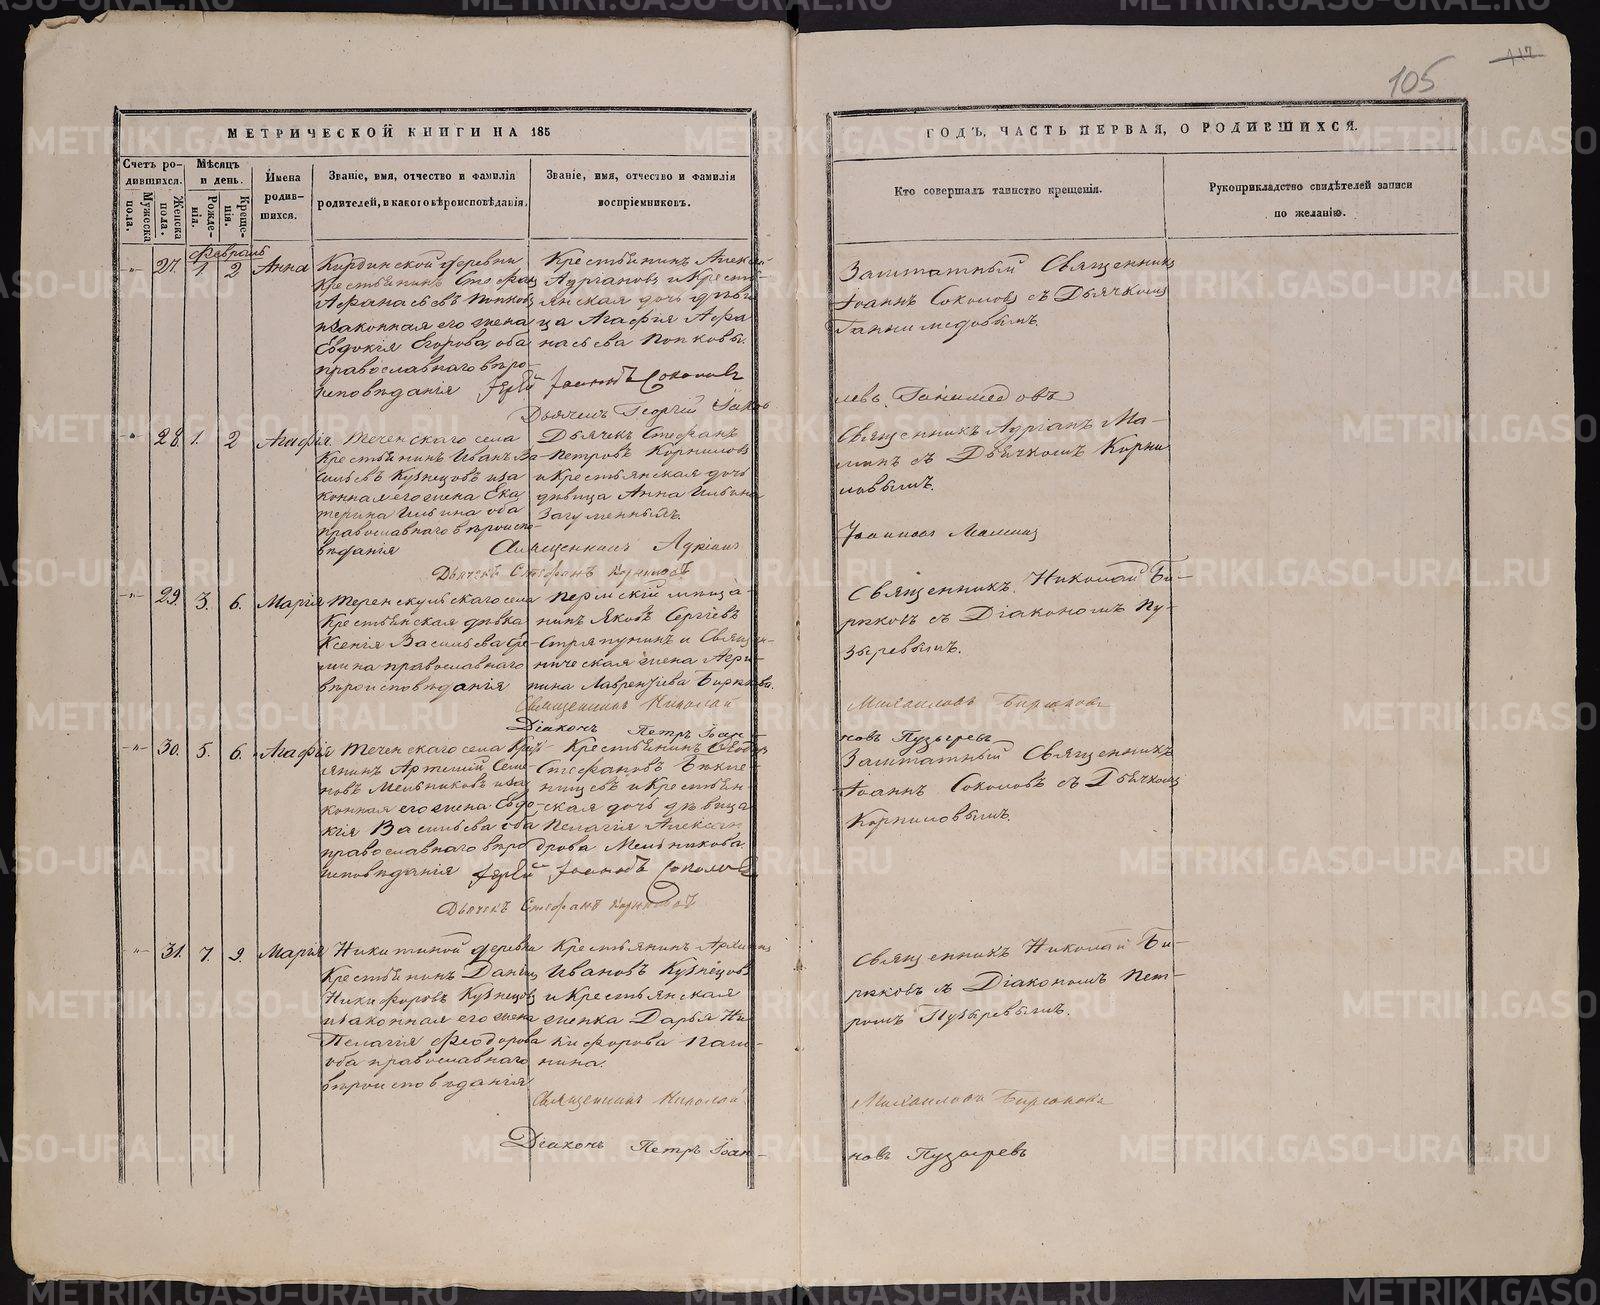 105
МЕТРИЧЕСКОЙ КНИГИ НА 185
ГОДЪ, ЧАСТЬ ПЕРВАЯ, О РОДИВШИХСЯ.
Счетъ родившихся.
Мужеска пола.
Женска пола.
Мѣсяцъ и день.
Рожденія.
Крещенія.
Имена родившихся.
Званіе, имя, отчество и фамилія
родителей, и какого вѣроисповѣданія.
Званіе, имя, отчество и фамилія
воспріемниковъ.
Кто совершалъ таинство крещенія.
Рукоприкладство свидѣтелей записи
по желанію.
Февраль
27. 1. 2 Анна
Кирдинской деревни
Крестьянинъ Стефанъ
Афанасьевъ Попковъ
и законная его жена
Евдокія Егорова, оба
православнаго вѣро-
исповѣданія
Крестьянинъ
и Кресть-
янская дочь дѣви
ца Агафія Афа
насьева Попковы.
Заштатный Священникъ
Іоаннъ Соколовъ съ Дьячкомъ
Ганимедовымъ.
Іерей Іоаннъ Соколовъ
Дьячекъ Георгій Іаков
левъ Ганимедовъ
28. 1. 2 Агафія.
Теченскаго села
Крестьянинъ Иванъ Ва-
сильевъ Кузнецовъ и за
конная его жена Ека
терина Ильина оба
православнаго вѣроиспо-
вѣданія
Дьячекъ Стефанъ
Петровъ Корниловъ
и Крестьянская дочь
дѣвица Анна Ильина
Загуменныхъ.
Священникъ Адріанъ Ма-
минъ съ Дьячкомъ Корни
ловымъ.
Священникъ Адріанъ
Іоанновъ Маминъ
Дьячекъ Стефанъ Корниловъ
29. 3. 6. Марія
Теренкульскаго села
Крестьянская дѣвка
Ксенія Васильева
православнаго
вѣроисповѣданія
Пермскій мѣща-
нинъ Яковъ Сергіевъ
Стряпунинъ и Священ-
ническая жена Агри-
пина Лаврентіева Бирюкова.
Священникъ Николай Би-
рюковъ съ Діакономъ Пу-
зыревымъ.
Священникъ Николай
Михаиловъ Бирюковъ
Діаконъ Петръ Іоан-
новъ Пузыревъ
30. 5. 6. Агафія
Теченскаго села Крестъ
янинъ Артемій Семе-
новъ Мельниковъ и за
конная его жена Евдо-
кія Васильева оба
православнаго вѣро
исповѣданія
Крестьянинъ
Стефановъ
и Крестьян-
ская дочь дѣвица
Пелагія Александ
дрова Мельникова
Заштатный Священникъ
Іоаннъ Соколовъ съ Дьячкомъ
Корниловымъ.
Іерей Іоаннъ Соколовъ
Дьячекъ Стефанъ Корниловъ
31. 7. 9. Марія
Никитиной деревни
Крестьянинъ Даніилъ
Никифоровъ Кузнецовъ
и законная его жена
Пелагія Феодорова
оба православнаго
вѣроисповѣданія
Крестьянинъ Архиппъ
Ивановъ Кузнецовъ
и Крестьянская
женка Дарья Ни
кифорова Паш-
нина.
Священникъ Николай Би-
рюковъ съ Діакономъ Пет-
ромъ Пузыревымъ.
Священникъ Николай
Михаиловъ Бирюковъ
Діаконъ Петръ Іоан-
новъ Пузыревъ
METRIKI.GASO-URAL.RU